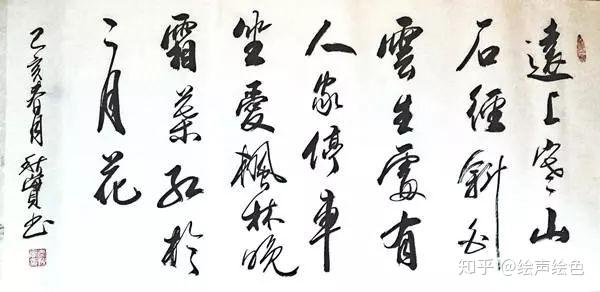 遠上寒山
石徑斜白
雲生處有
人家停車
坐愛楓林晚
霜葉紅於
二月花
己亥春月
知乎 @绘声绘色